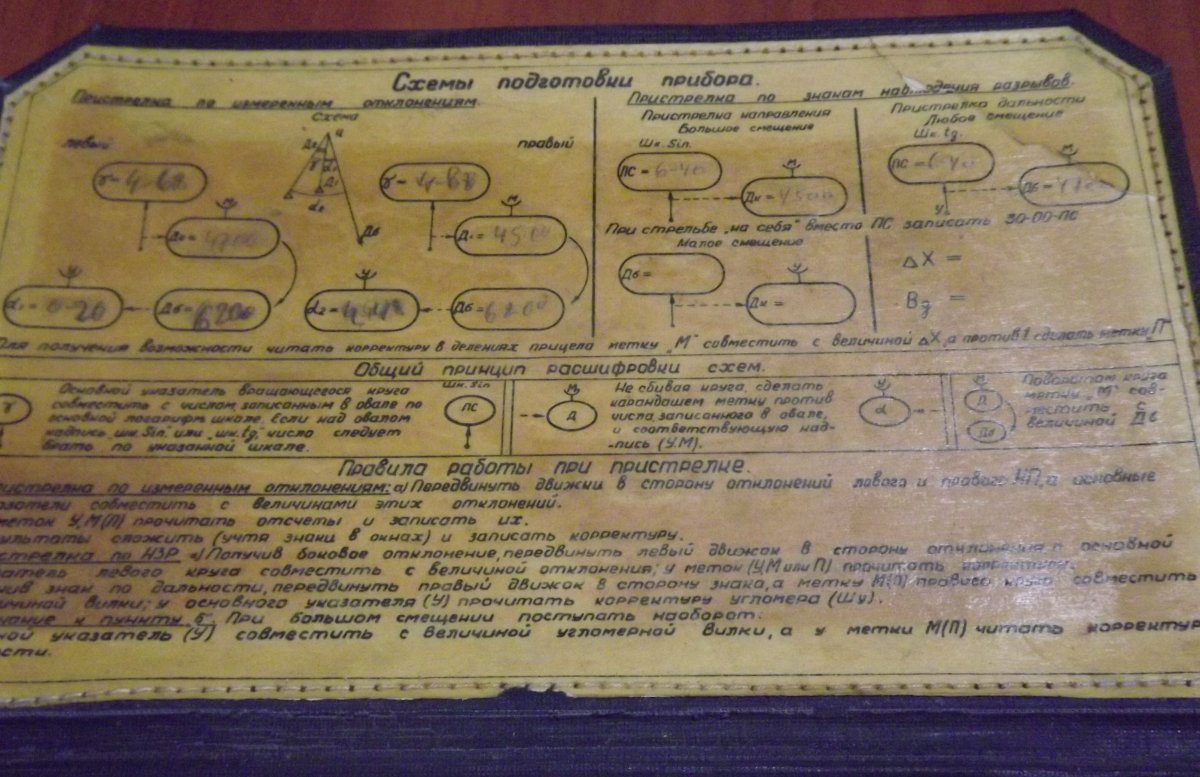 Схемы подготовки прибора.
Пристрелка по измеренным отклонениям.
Схема
левый
правый
γ = 4-68
γ = 4-68
М
М
Дк = 4700
Д1 = 4500
У
У
α1 = 0-20
Дб = 6200
α2 =
Дб = 6200
Дб
Пристрелка по знакам наблюдения разрывов.
Пристрелка направления
Большое смещение
Шк. Sin.
ПС = 6-40
М
Дк = 4500
При стрельбе „на себя" вместо ПС записать 30-00-ПС
Малое смещение
Дб =
У
Дк =
Пристрелка дальности
Любое смещение
Шк. tg.
ПС = 6-40
М
Дб =
У
ΔX =
Вд =
Для получения возможности читать корректуру в делениях прицела метку „М" совместить с величиной ΔX, а против 1 сделать метку „П"
Общий принцип расшифровки схем.
γ
Основной указатель вращающегося круга
совместить с числом, записанным в овале по
основной логарифм. шкале. Если над овалом
надпись „шк. Sin" или „шк. tg" число следует
брать по указанной шкале.
Шк. Sin
ПС
М
Д
Не сбивая круга, сделать
карандашем метку против
числа, записанного в овале,
и соответствующую над-
-пись (У.М).
У
α
М
Д
Дб
Поворотом круга
метку „М" сов-
-местить с
величиной Дб
Правила работы при пристрелке.
ристрелка по измеренным отклонениям: а) Передвинуть движки в сторону отклонений левого и правого НП, а основные
азатели совместить с величинами этих отклонений.
меток У, М(П) прочитать отсчеты и записать их.
ультаты сложить (учтя знаки в окнах) и записать корректуру.
стрелка по НЗР а) Получив боковое отклонение, передвинуть левый движок в сторону отклонения, а основной
атель левого круга совместить с величиной отклонения; у меток (У, М или П) прочитать корректуру.
чив знак по дальности, передвинуть правый движок в сторону знака, а метку М(П) правого круга совместить
ичиной вилки; у основного указателя (У) прочитать корректуру угломера (Шу).
чание к пункту б. При большом смещении поступать наоборот:
ной указатель (У) совместить с величиной угломерной вилки, а у метки М(П) читать корректур
ости.